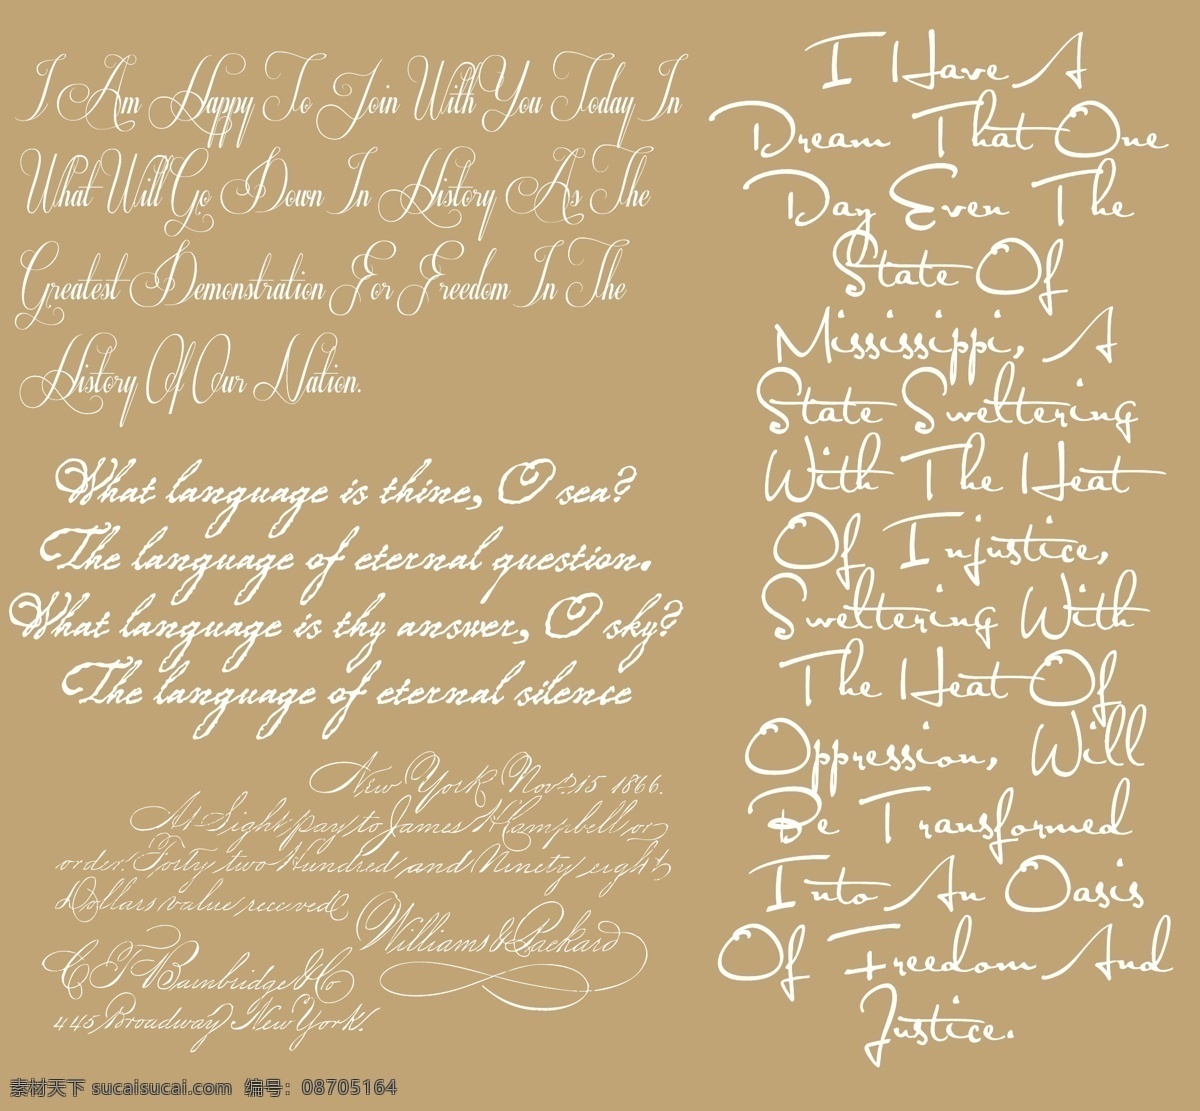 I Am Happy To Join With You Today In
What Will Go Down In History As The
Greatest Demonstration For Freedom In The
History Of Our Nation.
What language is thine, O sea?
The language of eternal question.
What language is thy answer, O sky?
The language of eternal silence
New York Nov. 15 1866.
At Sight pay to James H Campbell or
order. Forty two Hundred and Ninety eight
Dollars value received
Williams & Packard
C T Bambridge & Co
445 Broadway New York.
I Have A
Dream That One
Day Even The
State Of
Mississippi, A
State Sweltering
With The Heat
Of Injustice,
Sweltering With
The Heat Of
Oppression, Will
Be Transformed
Into An Oasis
Of Freedom And
Justice.
素材天下 sucaisucai.com 编号：08705164